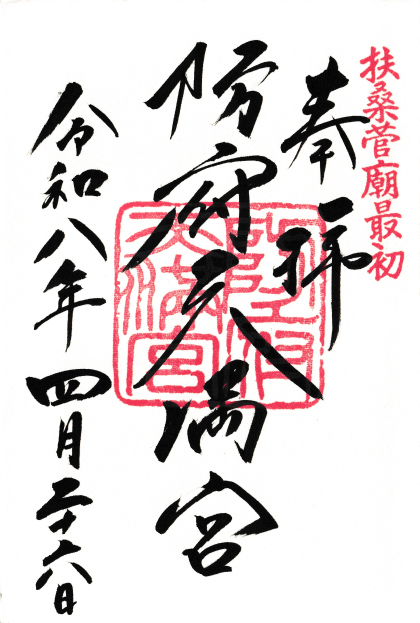 扶桑菅廟最初
奉拝
防府天満宮
防府天満宮
令和八年四月二十六日